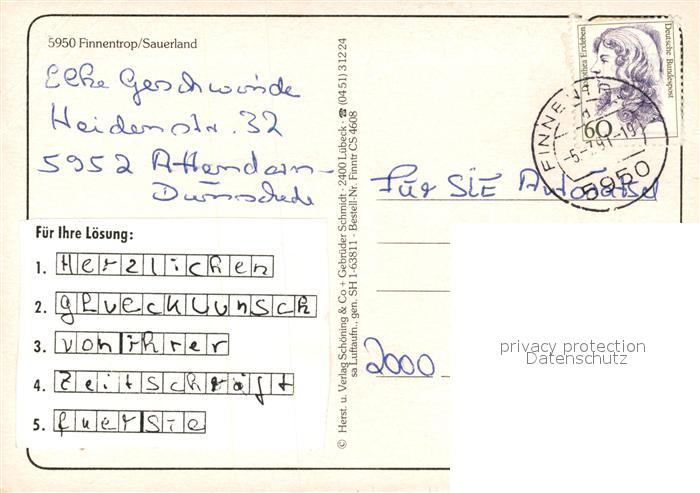 5950 Finnentrop/Sauerland
Elke Geschwinde
Heidenstr. 32
5952 Attendorn-
Dünschede
Für Ihre Lösung:
1. Herzlichen
2. glueckwunsch
3. von ihrer
4. Zeitschrift
5. fuer Sie
© Herst. u. Verlag Schöning & Co + Gebrüder Schmidt · 2400 Lübeck · ☎ (0451) 31224
sa Luftaufn., gen. SH 1-63811 · Bestell-Nr. Finntr CS 4608
Deutsche Bundespost
60
5950
Für SIE Autorätsel
2000
privacy protection
Datenschutz